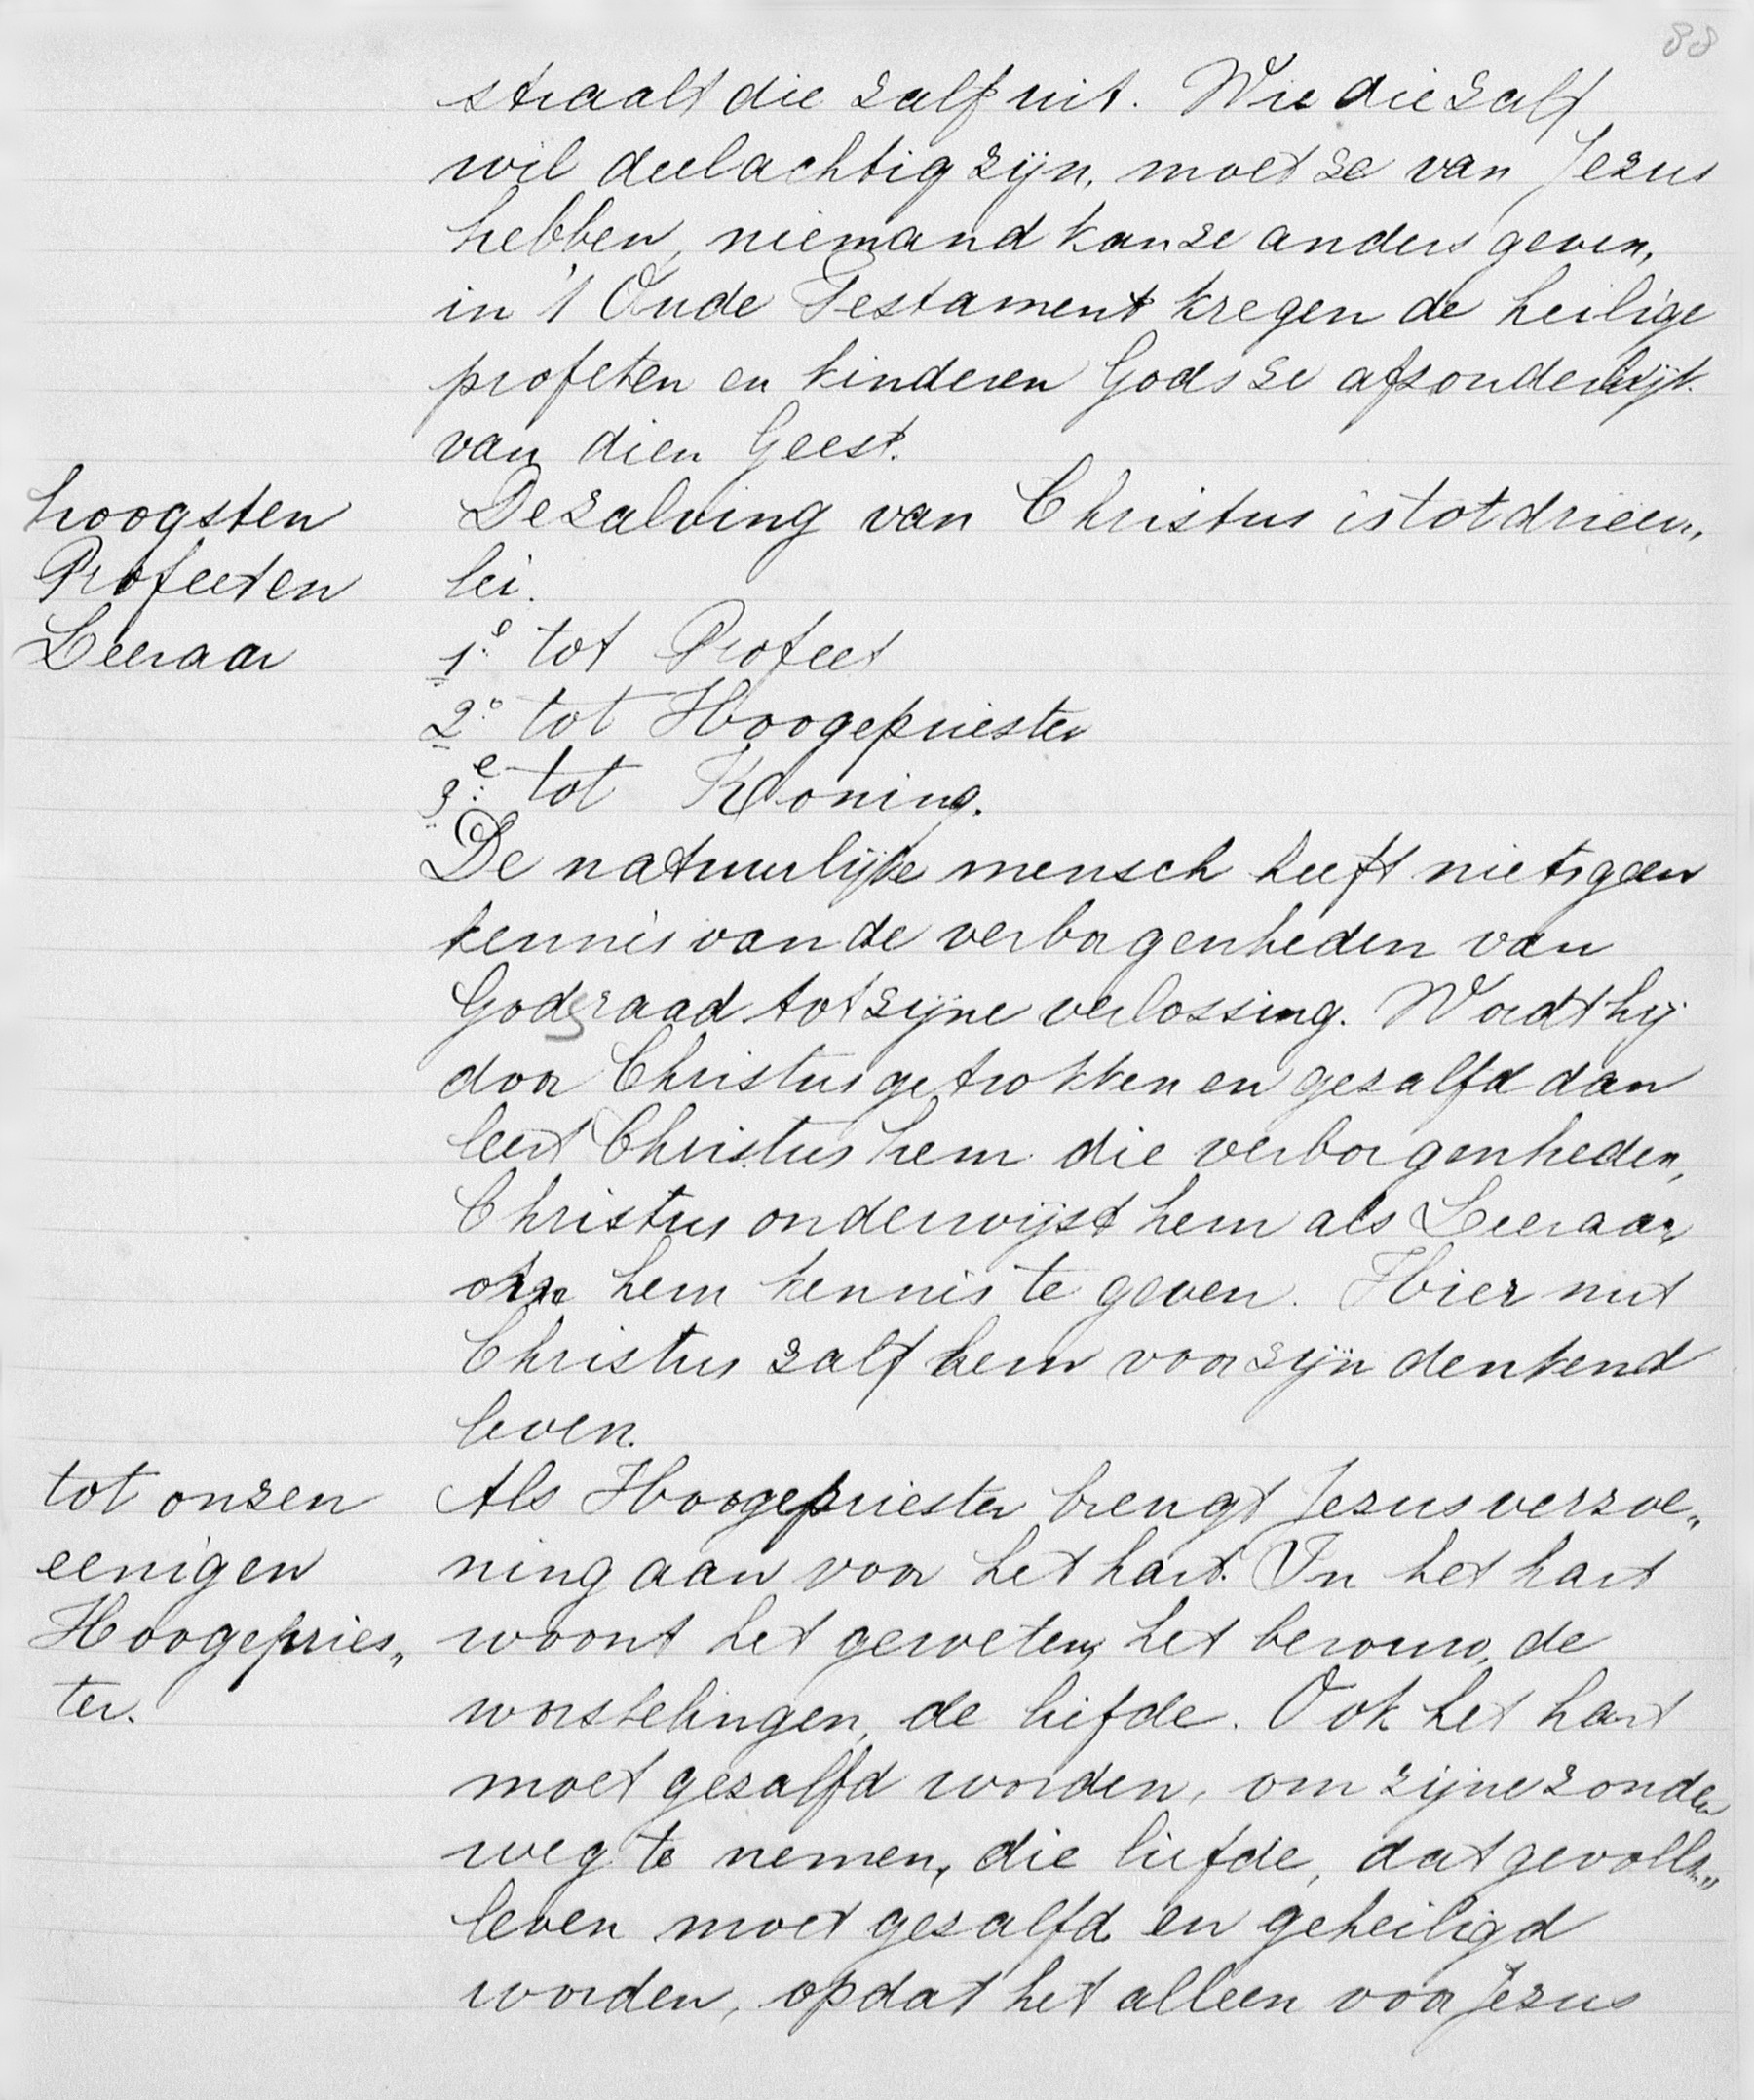 88
straalt die zalf uit. Wie die zalf
wil deelachtig zijn, moet ze van Jezus
hebben, niemand kan ze anders geven,
in 't Oude Testament kregen de heilige
profeten en kinderen Gods ze afzonderlijk
van dien Geest.
hoogsten
Profeet en
Leeraar
De zalving van Christus is tot drieër„
lei.
1e tot Profeet
2e tot Hoogepriester
3e tot Koning.
De natuurlijke mensch heeft niets geen
kennis van de verborgenheden van
Gods raad tot zijne verlossing. Wordt hij
door Christus getrokken en gezalfd dan
leert Christus hem die verborgenheden,
Christus onderwijst hem als Leeraar,
om hem kennis te geven. Hier mit
Christus zalf hem voor zijn denkend
leven.
tot onzen
eenigen
Hoogepries„
ter.
Als Hoogepriester brengt Jezus verzoe„
ning aan voor het hart. In het hart
woont het geweten, het berouw, de
worstelingen, de liefde. Ook het hart
moet gezalfd worden, om zijne zonden
weg te nemen, die liefde, dat gevolls„
leven moet gezalfd en geheiligd
worden, opdat het alleen voor Jezus